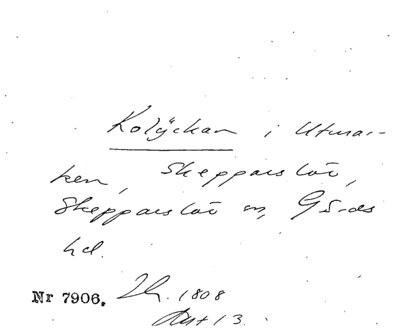 Kolÿckan i Utmar-
ken, Skepparslöv,
Skepparslöv sn, Gärds
hd.
Nr 7906. Lh. 1808
Akt 13.